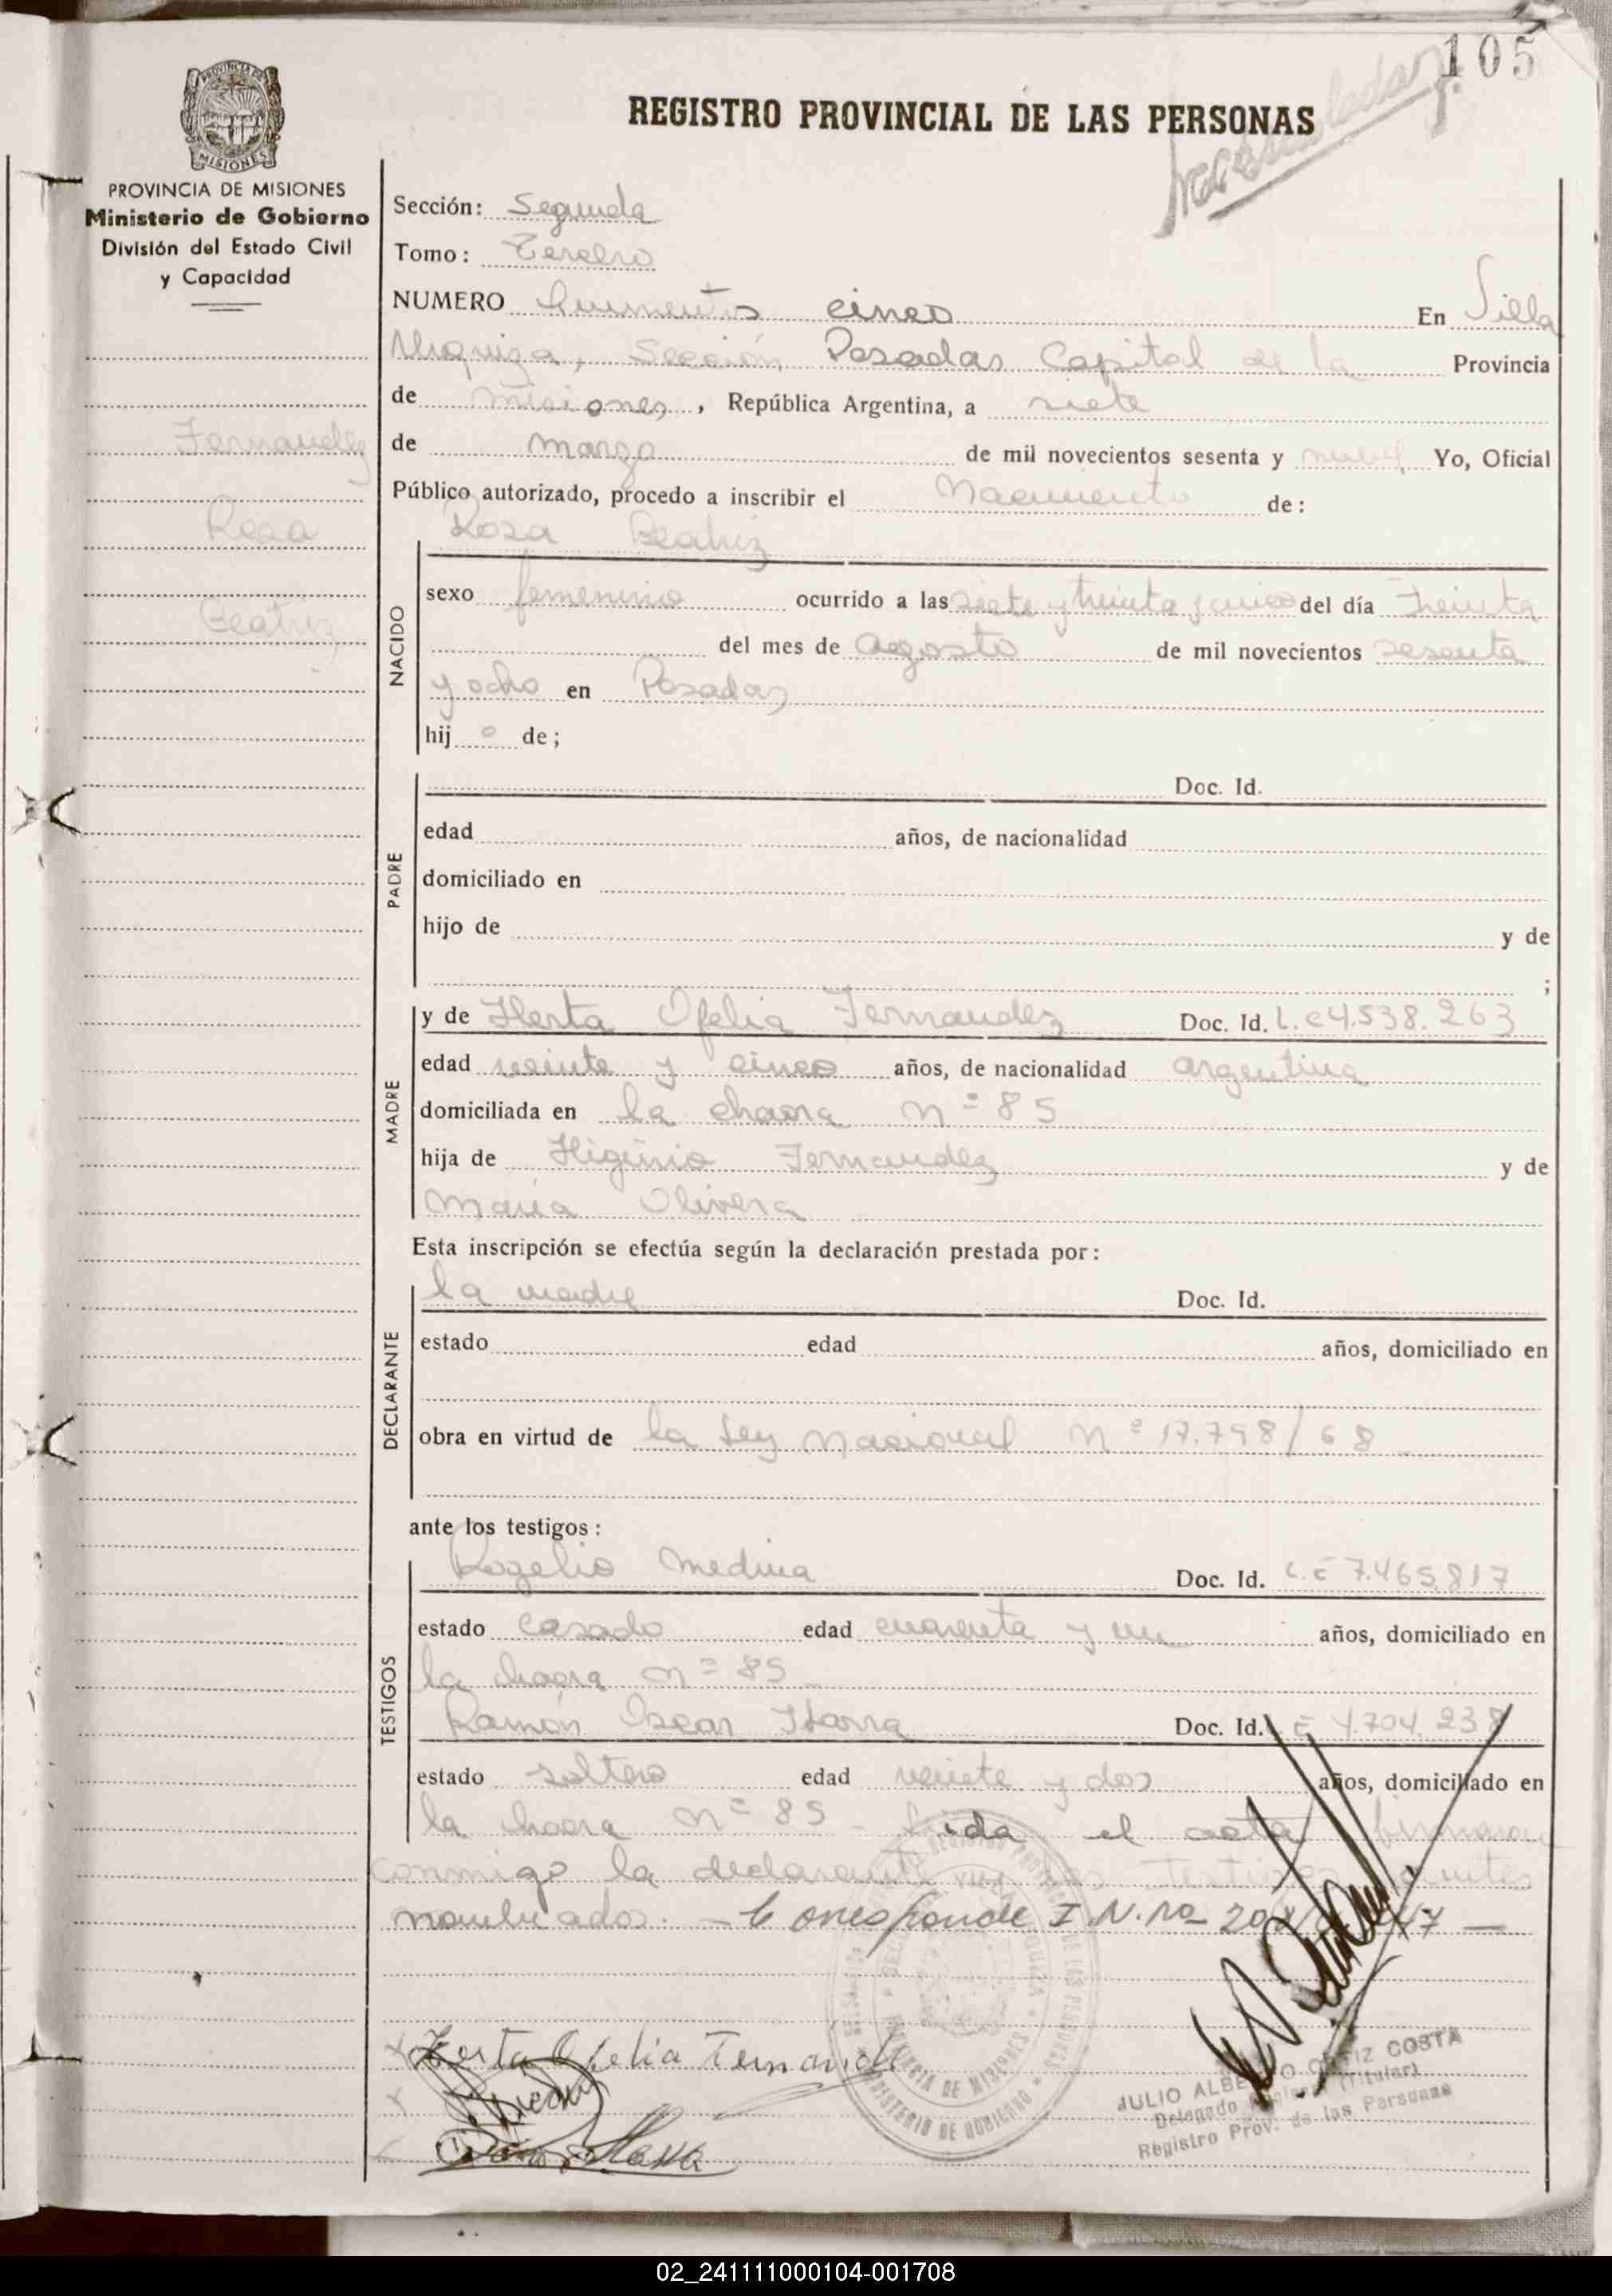 105
REGISTRO PROVINCIAL DE LAS PERSONAS
PROVINCIA DE MISIONES
MISIONES
PROVINCIA DE MISIONES
Ministerio de Gobierno
División del Estado Civil
y Capacidad
Fernandez
Rosa
Beatriz
Sección: Segunda
Tomo: Tercero
NUMERO Quinientos cinco En Villa
Urquiza, Sección Posadas Capital de la Provincia
de Misiones, República Argentina, a siete
de marzo de mil novecientos sesenta y nueve Yo, Oficial
Público autorizado, procedo a inscribir el Nacimiento de:
Rosa Beatriz
NACIDO
sexo femenino ocurrido a las siete y treinta y cinco del día treinta
del mes de agosto de mil novecientos sesenta
y ocho en Posadas
hij de;
PADRE
Doc. Id.
edad años, de nacionalidad
domiciliado en
hijo de y de
;
MADRE
y de Herta Ofelia Fernandez Doc. Id. L. C 4.538.263
edad veinte y cinco años, de nacionalidad argentina
domiciliada en la chacra nº 85
hija de Higinio Fernandez y de
María Olivera
Esta inscripción se efectúa según la declaración prestada por:
DECLARANTE
la madre Doc. Id.
estado edad años, domiciliado en
obra en virtud de la Ley Nacional Nº 17.798/68
ante los testigos:
TESTIGOS
Rogelio Medina Doc. Id. L. E 7.465.817
estado casado edad cuarenta y un años, domiciliado en
la chacra nº 85
Ramón Oscar Ibarra Doc. Id. L E 4.704.238
estado soltero edad veinte y dos años, domiciliado en
la chacra nº 85 - Leida el acta firmaron
conmigo la declarante testigos antes
nombrados. - Corresponde I.N. no 20
Herta Ofelia Fernandez
JULIO ALBERTO ORTIZ COSTA
Delegado (Titular)
Registro Prov. de las Personas
PROVINCIA DE MISIONES
MINISTERIO DE GOBIERNO
02_241111000104-001708